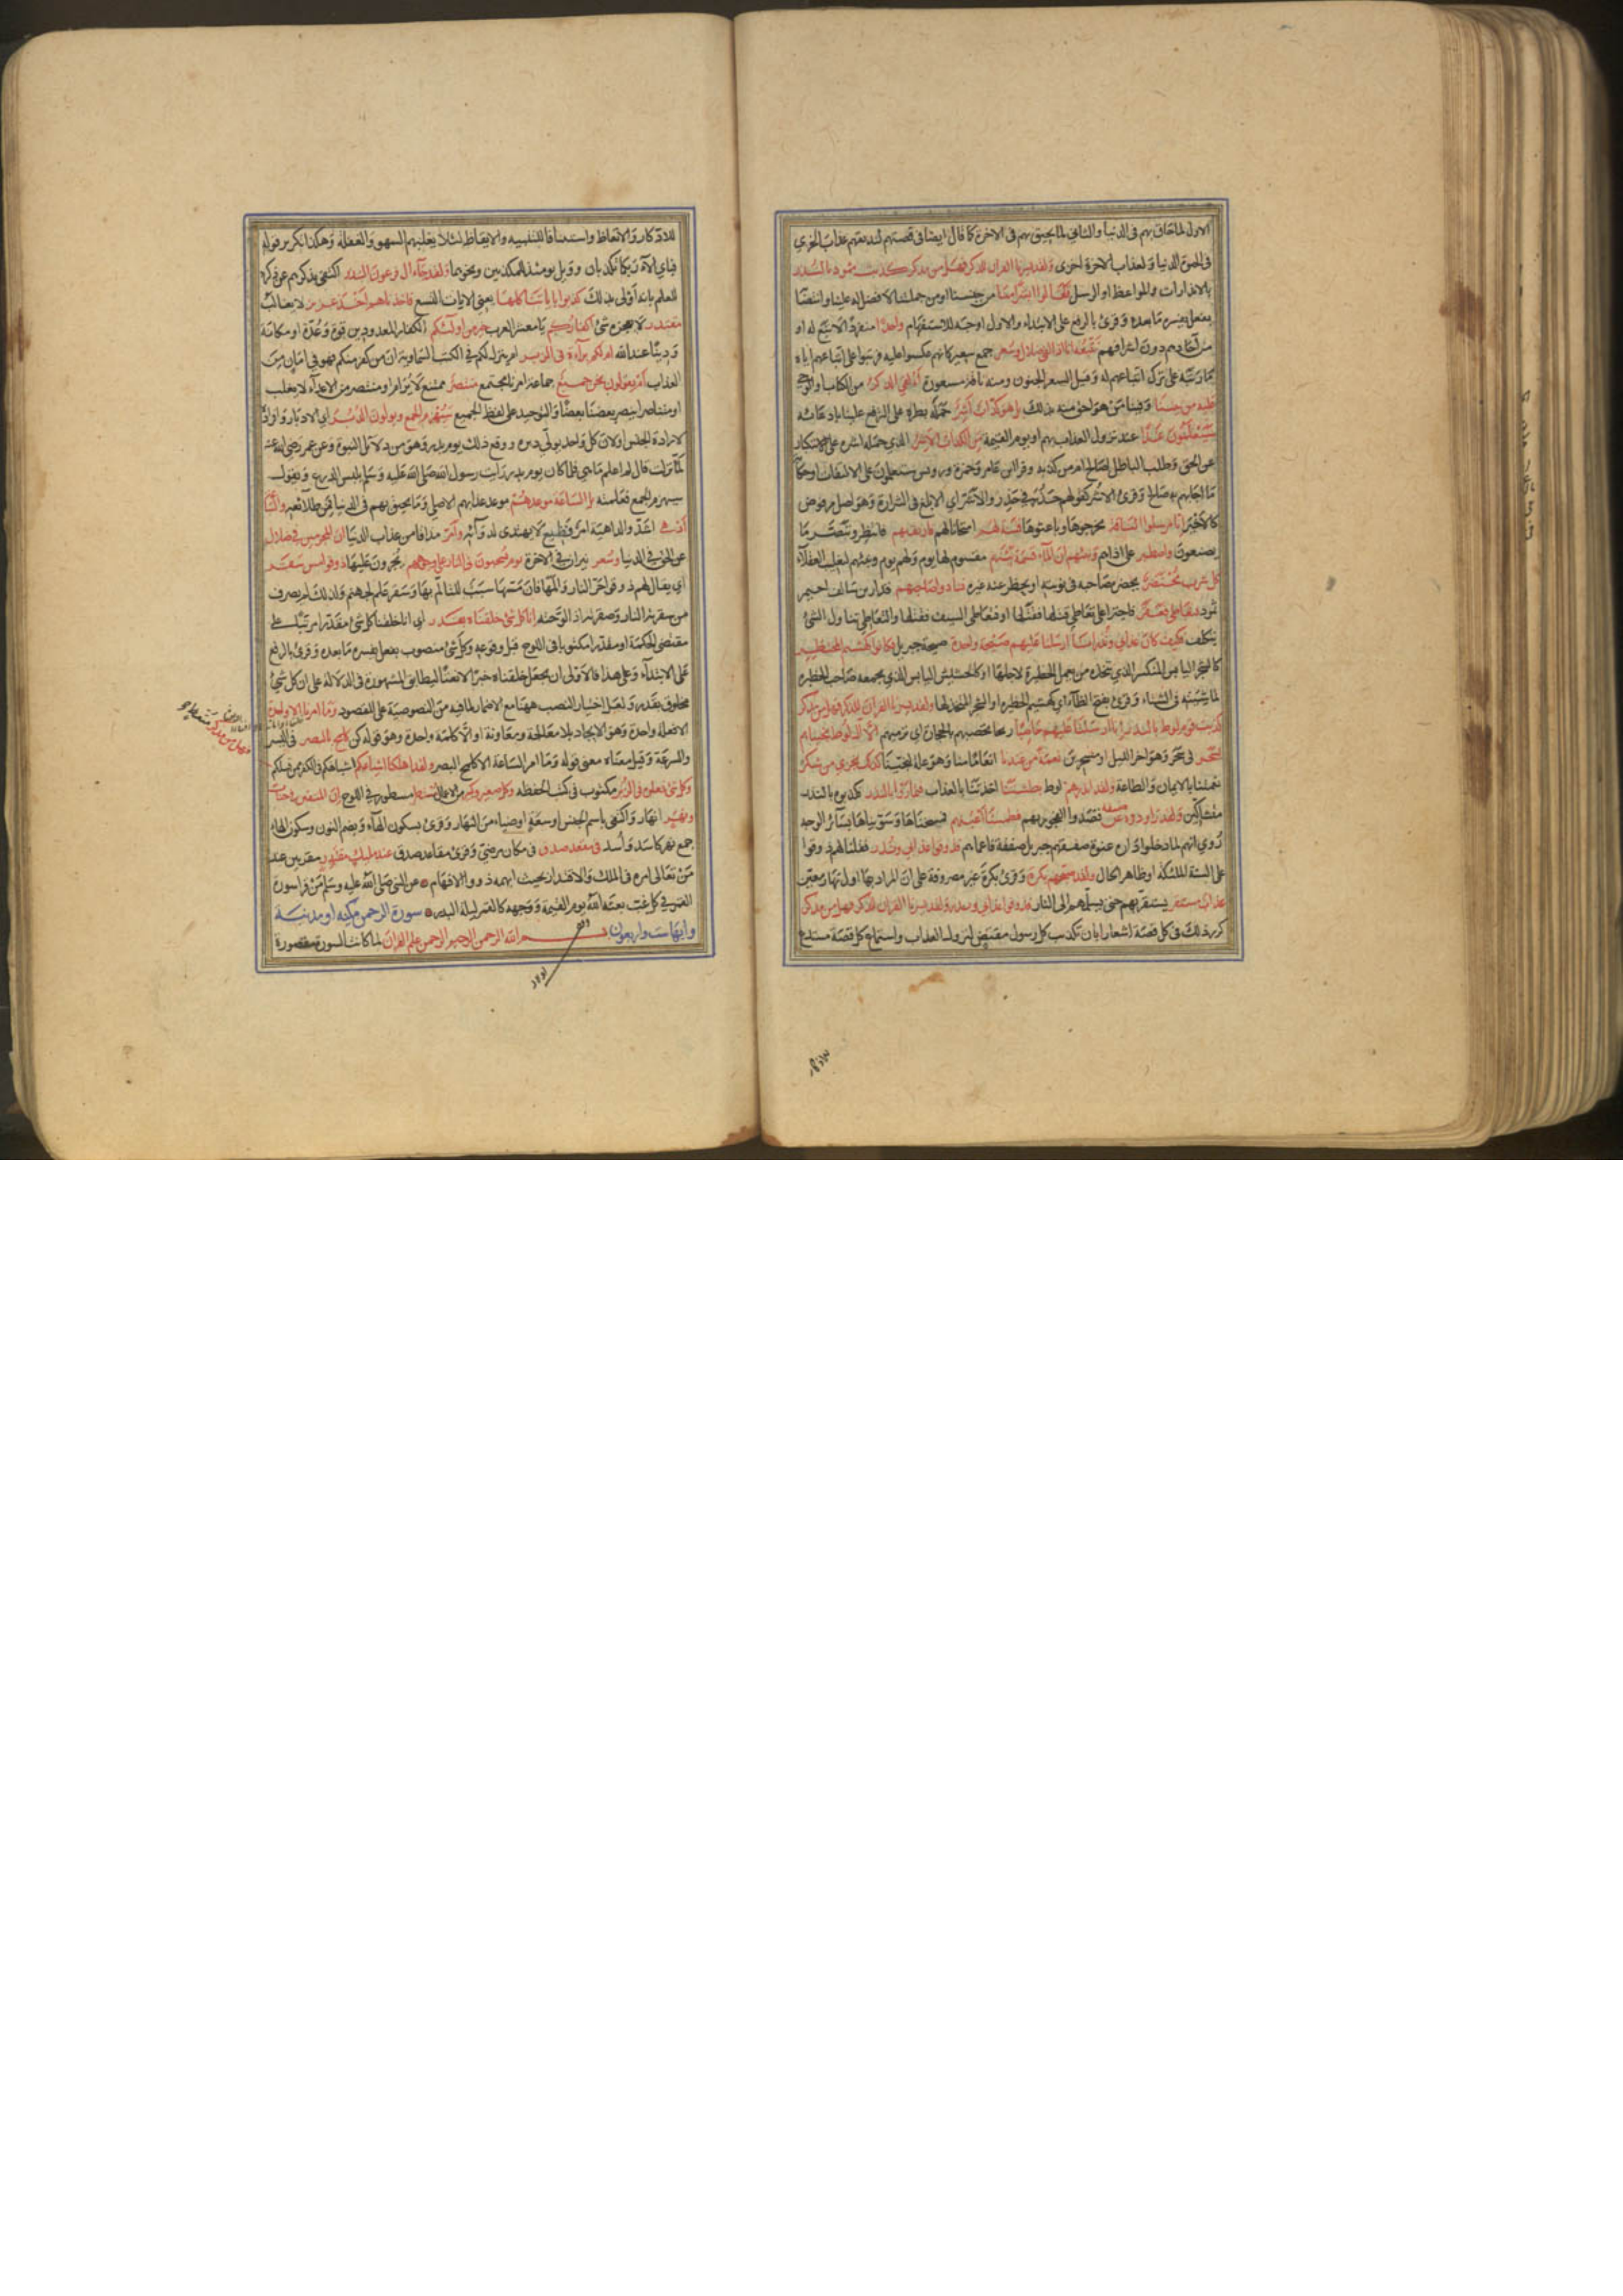 الاول لما حاق بهم في الدنيا والثاني لما يحيق بهم في الآخرة كما قال ايضا في قصتهم لنذيقهم عذاب الخزي
في الحيوة الدنيا ولعذاب الآخرة اخزى ولقد يسرنا القران للذكر فهل من مدكر كذبت ثمود بالنذر
بالانذارات والمواعظ او الرسل فقالوا ابشرا منا من جنسنا او من جملتنا لا فضل له علينا وانتصابه
بفعل يفسره ما بعده وقرئ بالرفع على الابتداء والاول اوجه للاستفهام واحدا منفردا لا تبع له او
من آحادهم دون اشرافهم نتبعه انا اذا لفي ضلال وسعر جمع سعير كانهم عكسوا عليه فرتبوا على اتباعهم اياه
ما رتبه على ترك اتباعهم له وقيل السعر الجنون ومنه ناقة مسعورة أألقي الذكر من الكتاب او الوحي
عليه من بيننا وفينا من هو احق منه بذلك بل هو كذاب اشر حمله بطره على الترفع علينا بادعائه
سيعلمون غدا عند نزول العذاب بهم او يوم القيمة من الكذاب الاشر الذي حمله اشره على الاستكبار
عن الحق وطلب الباطل اصالح ام من كذبه وقرا ابن عامر وحمزة ورويس ستعلمون على الالتفات او حكاية
ما اجابهم به صالح وقرئ الاشر كقولهم حذر في حذر والاشر اي الابلغ في الشرارة وهو اصل مرفوض
كالاخير انا مرسلوا الناقة مخرجوها وباعثوها فتنة لهم امتحانا لهم فارتقبهم فانتظرهم وتبصر ما
يصنعون واصطبر على اذاهم ونبئهم ان الماء قسمة بينهم مقسوم لها يوم ولهم يوم وبينهم لتغليب العقلاء
كل شرب محتضر يحضره صاحبه في نوبته او يحظر عنه غيره فنادوا صاحبهم قدار بن سالف احيمر
ثمود فتعاطى فعقر فاجترا على تعاطي قتلها فقتلها او فتعاطى السيف فقتلها والتعاطي تناول الشئ
بتكلف فكيف كان عذابي ونذر انا ارسلنا عليهم صيحة واحدة صيحة جبريل فكانوا كهشيم المحتظر
كالشجر اليابس المتكسر الذي يتخذه من يعمل الحظيرة لاجلها او كالحشيش اليابس الذي يجمعه صاحب الحظيرة
لماشيته في الشتاء وقرئ بفتح الظاء اي كهشيم الحظيرة او الشجر المتخذ لها ولقد يسرنا القران للذكر فهل من مدكر
كذبت قوم لوط بالنذر انا ارسلنا عليهم حاصبا ريحا تحصبهم بالحجارة اي ترميهم الا ال لوط نجيناهم
بسحر في سحر وهو اخر الليل او مسحرين نعمة من عندنا انعاما منا وهو علة لنجينا كذلك نجزي من شكر
نعمتنا بالايمان والطاعة ولقد انذرهم لوط بطشتنا اخذتنا بالعذاب فتماروا بالنذر فكذبوه بالنذر
متشاكين ولقد راودوه عن ضيفه قصدوا الفجور بهم فطمسنا اعينهم فمسحناها وسويناها بسائر الوجه
روي انهم لما دخلوا داره عنوة صفقهم جبريل صفقة فاعماهم فذوقوا عذابي ونذر فقلنا لهم ذوقوا
على السنة الملئكة او ظاهر الحال ولقد صبحهم بكرة وقرئ بكرة غير مصروفة على ان المراد بها اول نهار معين
عذاب مستقر يستقر بهم حتى يسلمهم الى النار فذوقوا عذابي ونذر ولقد يسرنا القران للذكر فهل من مدكر
كرر ذلك في كل قصة اشعارا بان تكذيب كل رسول مقتض لنزول العذاب واستماع كل قصة مستدع
للادكار والاتعاظ واستئنافا للتنبيه والايقاظ لئلا يغلبهم السهو والغفلة وهكذا تكرير قوله
فباي الآء ربكما تكذبان وويل يومئذ للمكذبين ونحوهما ولقد جاء ال فرعون النذر اكتفى بذكرهم عن ذكره
للعلم بانه اولى بذلك كذبوا باياتنا كلها يعني الايات التسع فاخذناهم اخذ عزيز لا يغالب
مقتدر لا يعجزه شئ اكفاركم يا معشر العرب خير من اولئكم الكفار المعدودين قوة وعدة او مكانة
ودينا عند الله ام لكم براءة في الزبر ام نزل لكم في الكتب السماوية ان من كفر منكم فهو في امان من
العذاب ام يقولون نحن جميع جماعة امرنا مجتمع منتصر ممتنع لا يرام او منتصر من الاعداء لا يغلب
او متناصر ينصر بعضنا بعضا والتوحيد على لفظ الجميع سيهزم الجمع ويولون الدبر اي الادبار وافراده
لارادة الجنس او لان كل واحد يولي دبره ووقع ذلك يوم بدر وهو من دلائل النبوة وعن عمر رضي الله عنه
لما نزلت قال لم اعلم ما هي فلما كان يوم بدر رايت رسول الله صلى الله عليه وسلم يلبس الدرع ويقول
سيهزم الجمع فعلمته بل الساعة موعدهم موعد عذابهم الاصلي وما يحيق بهم في الدنيا فمن طلائعه والساعة
ادهى اشد والداهية امر فظيع لا يهتدى لدوائه وامر مذاقا من عذاب الدنيا ان المجرمين في ضلال
عن الحق في الدنيا وسعر نيران في الآخرة يوم يسحبون في النار على وجوههم يجرون عليها ذوقوا مس سقر
اي يقال لهم ذوقوا حر النار والمها فان مسها سبب للتالم بها وسقر علم لجهنم ولذلك لم يصرف
من سقرته النار وصقرته اذا لوحته انا كل شئ خلقناه بقدر اي انا خلقنا كل شئ مقدرا مرتبا على
مقتضى الحكمة او مقدرا مكتوبا في اللوح قبل وقوعه وكل شئ منصوب بفعل يفسره ما بعده وقرئ بالرفع
على الابتداء وعلى هذا فالاولى ان يجعل خلقناه خبرا لا نعتا ليطابق المشهورة في الدلالة على ان كل شئ
مخلوق بقدر ولعل اختيار النصب ههنا مع الاضمار لما فيه من النصوصية على المقصود وما امرنا الا واحدة
الا فعلة واحدة وهو الايجاد بلا معالجة ومعاونة او الا كلمة واحدة وهو قوله كن كلمح بالبصر في اليسر
والسرعة وقيل معناه معنى قوله وما امر الساعة الا كلمح البصر ولقد اهلكنا اشياعكم اشباهكم في الكفر ممن قبلكم
فهل من مدكر
وكل شئ فعلوه في الزبر مكتوب في كتب الحفظة وكل صغير وكبير من الاعمال مستطر مسطور في اللوح ان المتقين في جنات
ونهر انهار واكتفى باسم الجنس او سعة او ضياء من النهار وقرئ بسكون الهاء وبضم النون وسكون الهاء
جمع نهر كاسد واسد في مقعد صدق في مكان مرضي وقرئ مقاعد صدق عند مليك مقتدر مقربين عند
من تعالى امره في الملك والاقتدار بحيث ابهمه ذووا الافهام عن النبي صلى الله عليه وسلم من قرا سورة
القمر في كل غب بعثه الله يوم القيمة ووجهه كالقمر ليلة البدر سورة الرحمن مكية او مدنية
وايها ست واربعون بسم الله الرحمن الرحيم الرحمن علم القران لما كانت السورة مقصورة